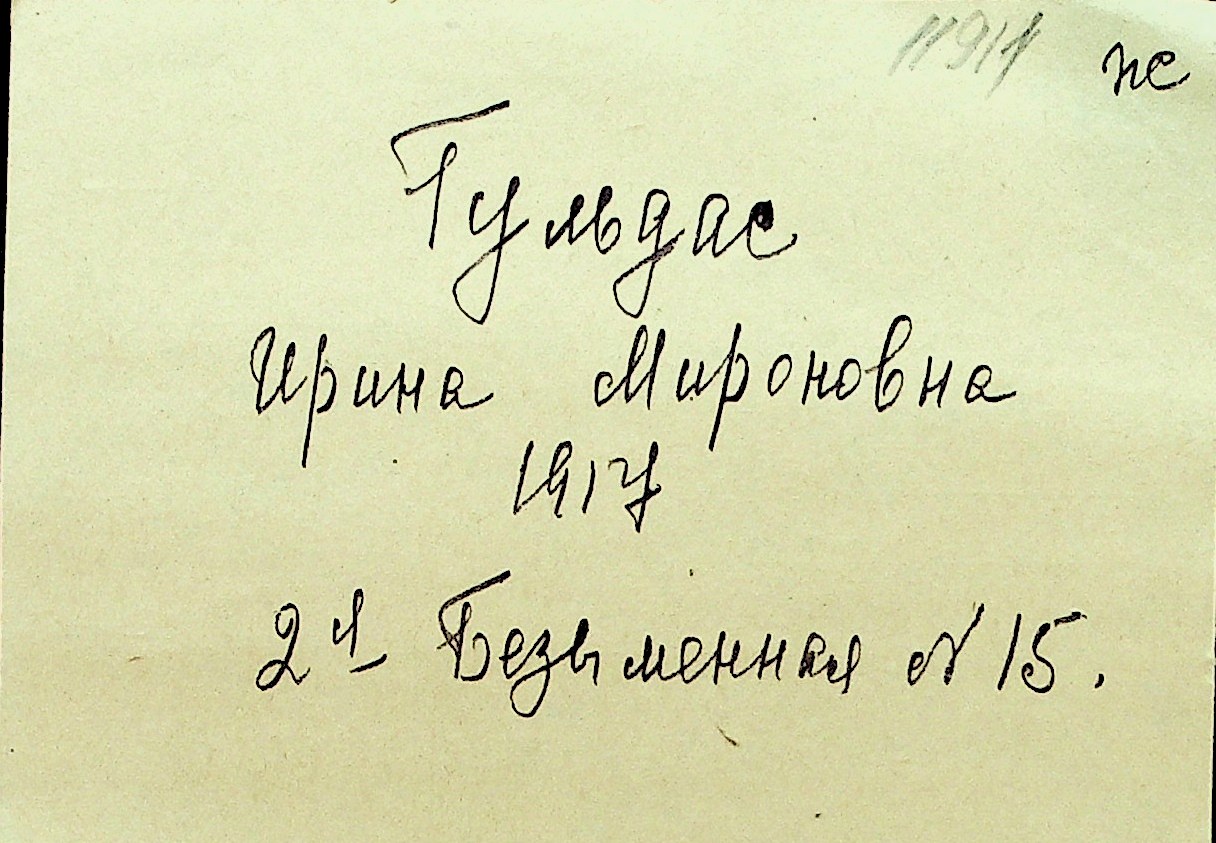 11911 ж
Гульдас
Ирина Мироновна
1917
2я Безыменная № 15.